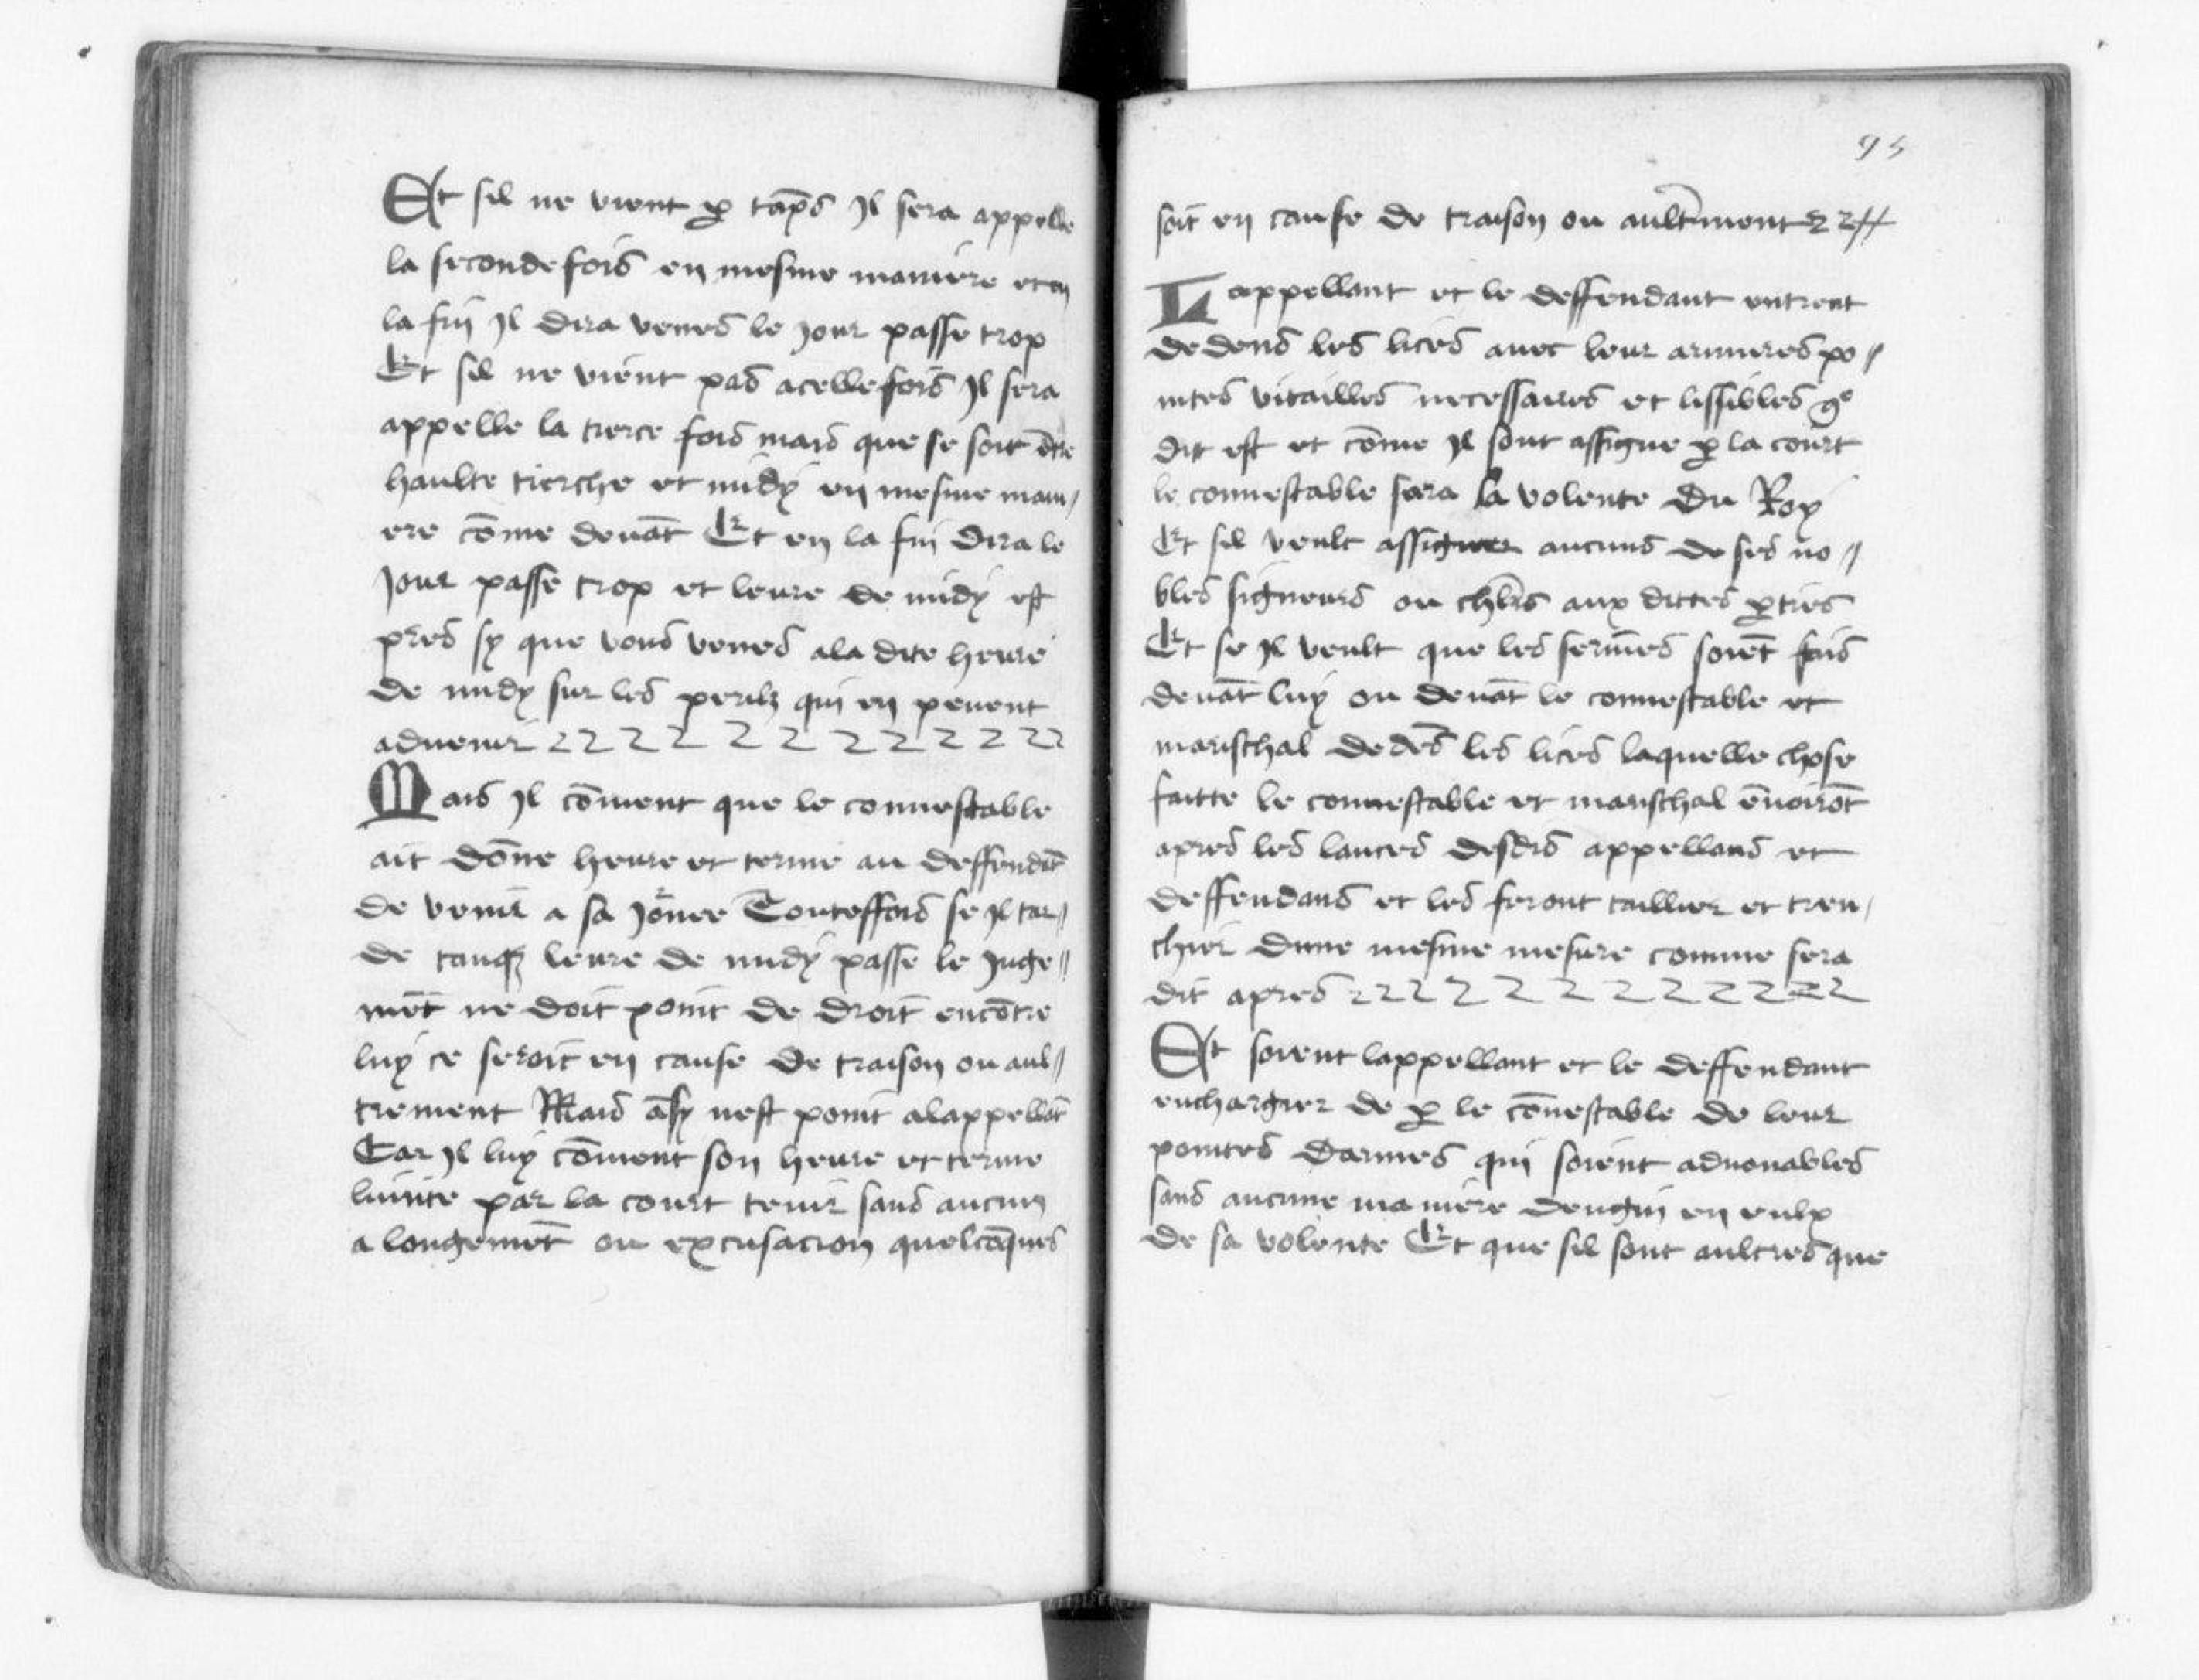 Et sil ne vient p taps Il sera appelle
la seconde fois en mesme maniere et en
la fin Il dira venes le Jour passe trop
Et sil ne vient pas acelle fois Il sera
appelle la tierce fois mais que se soit
haulte tierche et midy en mesme mani/
ere cōme deuāt Et en la fin dira le
Jour passe trop et leure de midy est
pres sy que vous venes ala dite heure
de midy sur les perilz qui en peuent
aduenir
Mais Il cōuient que le connestable
ait dōne heure et terme au deffendāt
de venir a sa Jōnee Touteffois se Il tar//
de tanq leure de midy passe le Juge//
mēt ne doit point de droit encōtre
luy ce seroit en cause de traison ou aul//
trement Mais āsy nest point alappellāt
Car Il luy cōuient son heure et terme
limite par la court tenir sans aucun
a longemēt ou excusacion quelcōques
95
soit en cause de traison ou aultrement
Lappellant et le deffendant entrent
dedens les lices auec leur armures po//
intes vitailles necessaires et lissibles 9e
dit est et cōme Il sont assigne p la court
le connestable sara la volente du Roy
Et sil veult assigner aucuns de ses no//
bles signeurs ou chlrs aux dittes pties
Et se Il veult que les sermēs soiēt fais
deuāt luy ou deuāt le connestable et
marischal dedēs les lices laquelle chose
faitte le connestable et marischal ēuoirōt
apres les lances desdis appellans et
deffendans et les feront taillier et tren/
chier dune mesme mesure comme sera
dit apres
Et soient lappellant et le deffendant
enchargier de p le cōnestable de leur
pointes darmes qui soient aduouables
sans aucune maniere dengin en eulx
de sa volente Et que sil sont aultres que